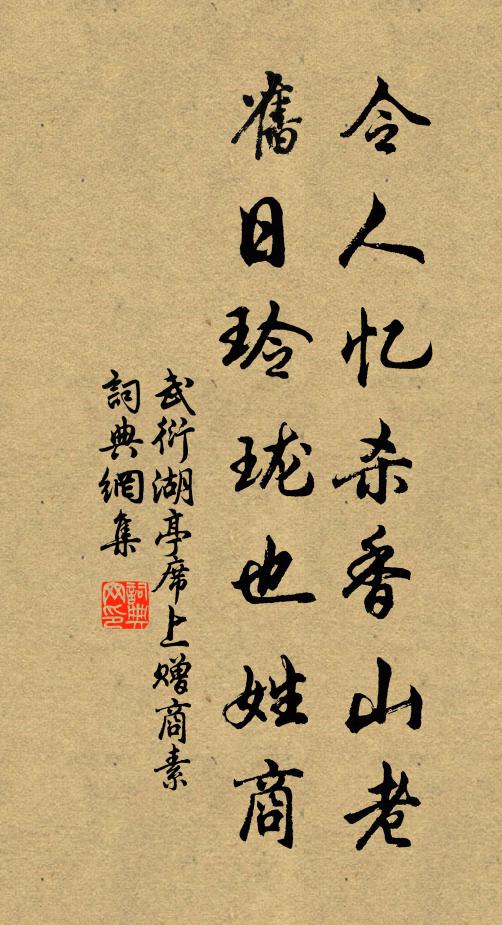 令人忆杀香山老
舊日玲珑也姓商
武衍湖亭席上赠商素
詞典網集
詞典网印